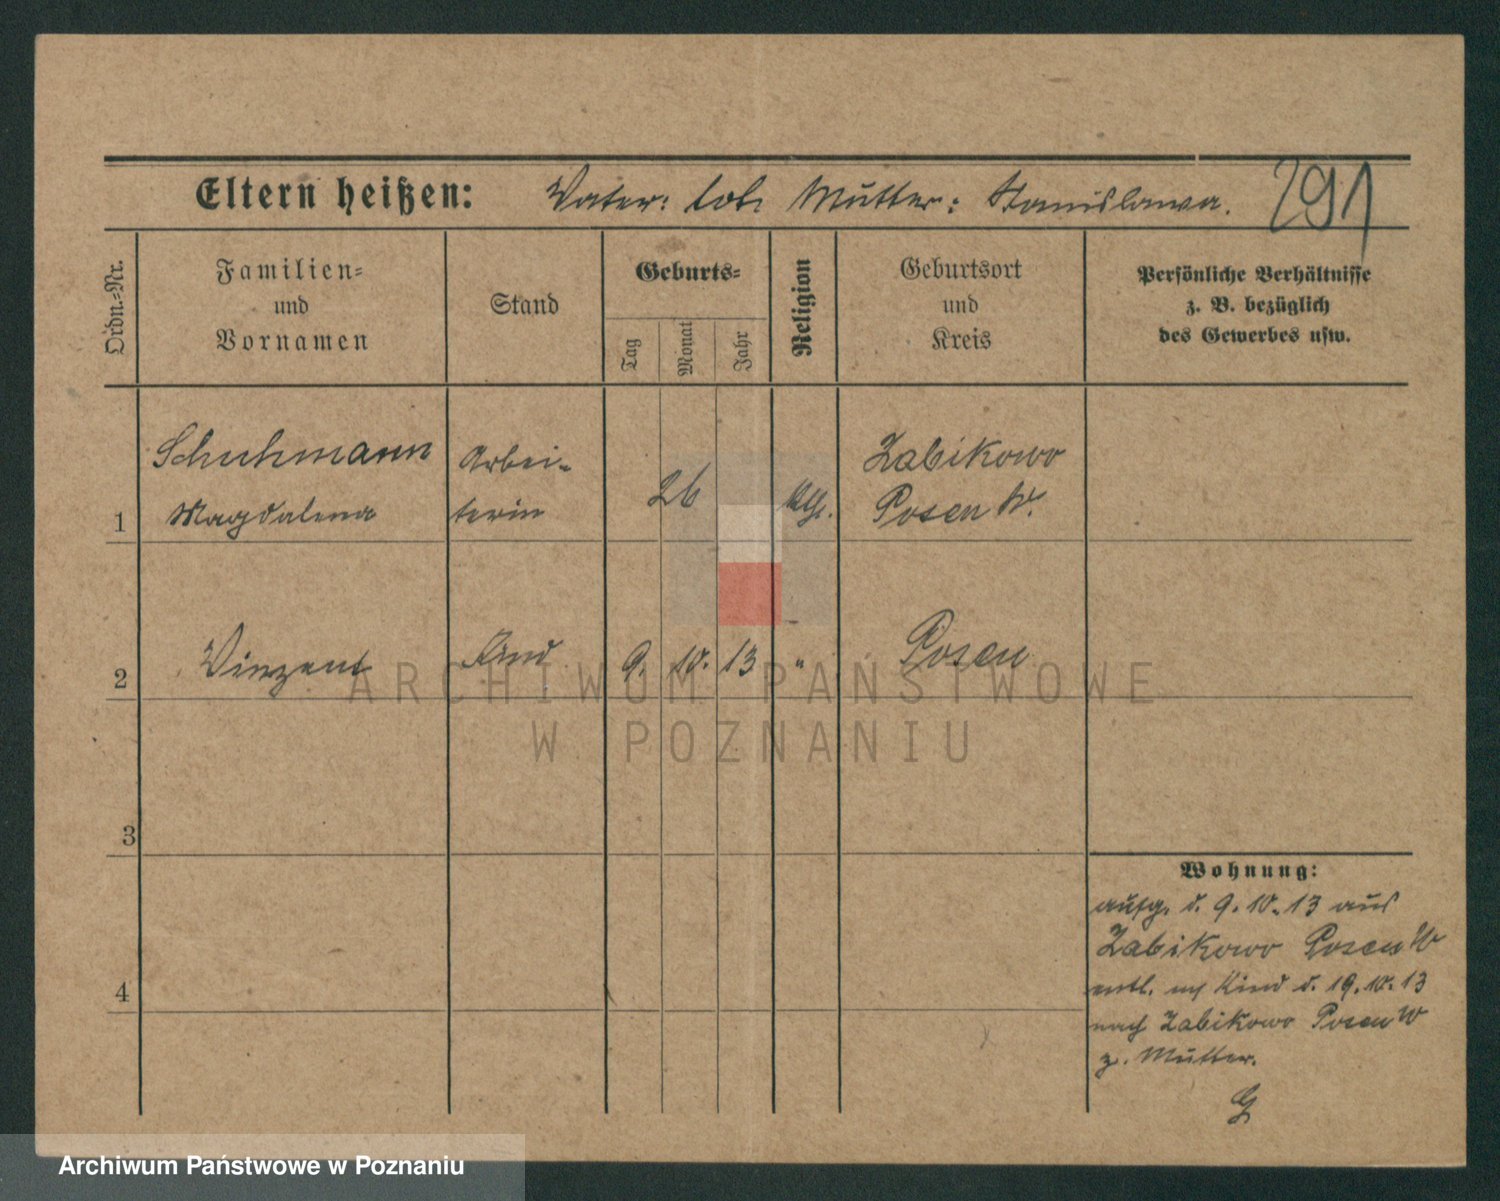 Eltern heißen: Vater: tot. Mutter: Stanislawa. 291
Ordn.=Nr.
Familien=
und
Vornamen
Stand
Geburts=
Tag
Monat
Jahr
Religion
Geburtsort
und
Kreis
Persönliche Verhältnisse
z. B. bezüglich
des Gewerbes usw.
1
Schuhmann
Magdalena
Arbei-
terin
26
Zabikowo
Posen W.
2
Vinzent
Kind
9. 10. 13
"
Posen
3
4
Wohnung:
aufg. d. 9.10.13 aus
Zabikowo Posen W
entl. Kind d. 19.10.13
nach Zabikowo Posen W
z. Mutter.
ARCHIWUM PAŃSTWOWE
W POZNANIU
Archiwum Państwowe w Poznaniu